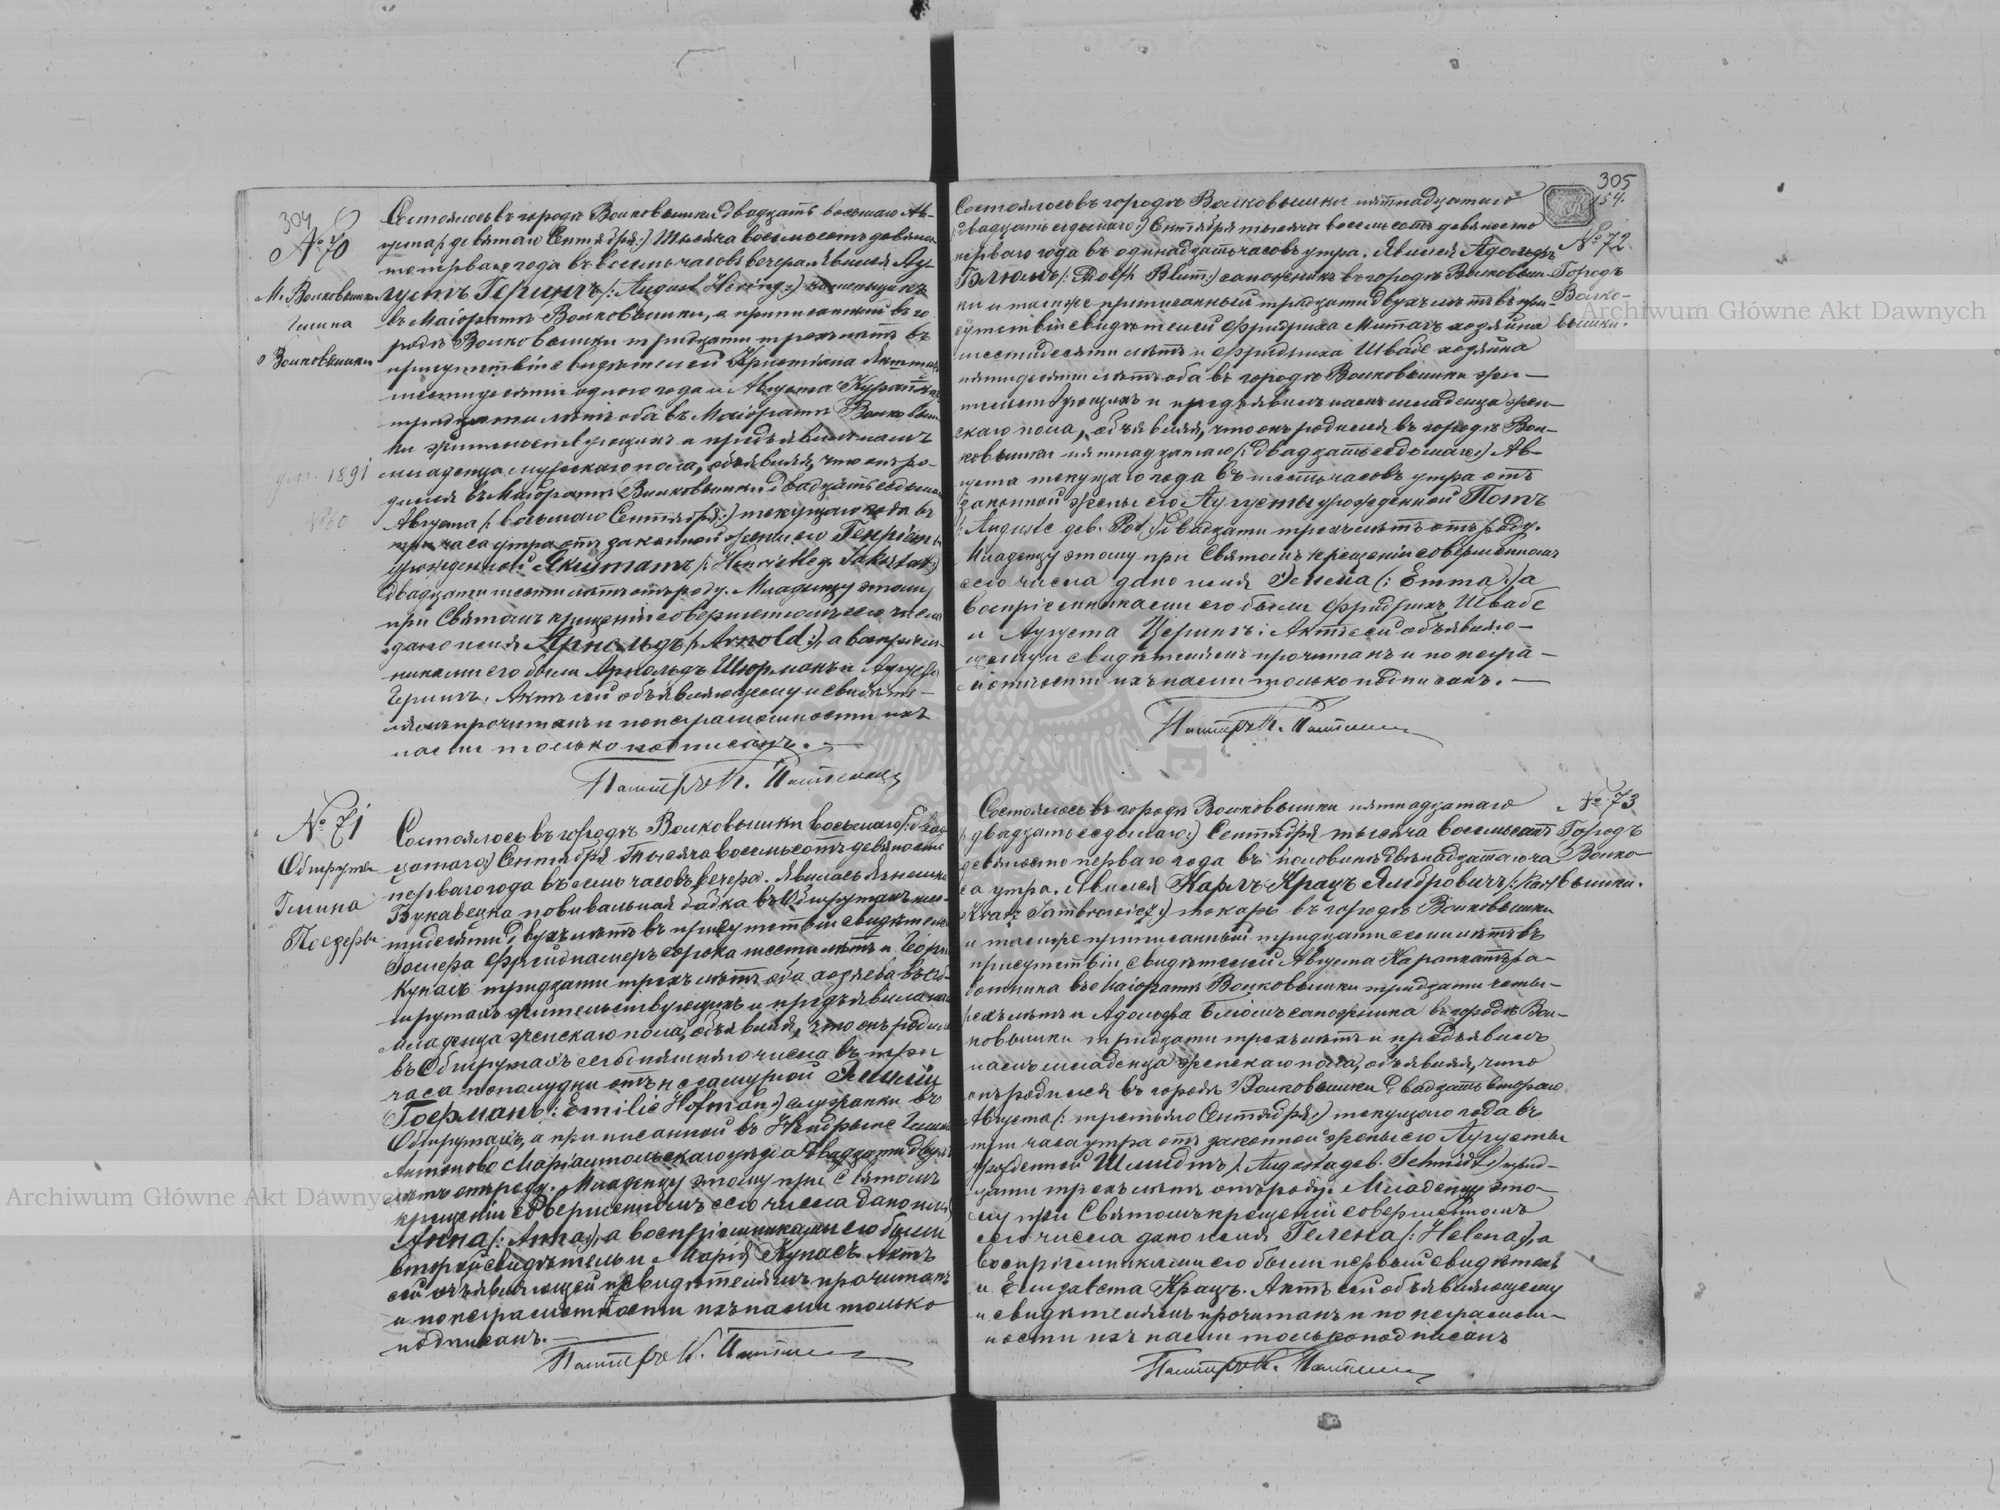 304
№ 70
М. Волковышки
Гмина
Волковышки
1891
№ 60
Состоялось въ городѣ Волковышки двадцать восьмаго Ав-
густа /: девятаго Сентября :/ тысяча восемьсотъ девяно-
сто перваго года въ восемь часовъ вечера. Явился Ав-
густъ Герингъ /: August Hering :/
въ Маіоратѣ Волковышки, а приписанный въ го-
родѣ Волковышки тридцати трехъ лѣтъ въ
присутствіи свидѣтелей Христіана
шестидесяти одного года и Августа
тридцати лѣтъ оба въ Маіоратѣ Волковыш-
ки жительствующихъ и предъявилъ намъ
младенца мужескаго пола, объявляя, что онъ ро-
дился въ Маіоратѣ Волковышки двадцать седьмаго
Августа /: восьмаго Сентября :/ текущаго года въ
три часа утра отъ законной жены его Генріеты
урожденной Якштатъ /: Henriette g. Jakstat :/
двадцати шести лѣтъ отъ роду. Младенцу этому
при Святомъ крещеніи совершенномъ сего числа
дано имя Арнольдъ /: Arnold :/, а воспріем-
никами его были Арнольдъ Шюрманъ и Августа
Герингъ. Актъ сей объявляющему и свидѣте-
лямъ прочитанъ и по неграмотности ихъ
нами только подписанъ. —
Пасторъ К.
№ 71
Обшруты
Гмина
Поезеры
Состоялось въ городѣ Волковышки восьмаго /: двад-
цатаго :/ Сентября тысяча восемьсотъ девяносто
перваго года въ семь часовъ вечера. Явилась
повивальная бабка въ Обшрутахъ
десяти двухъ лѣтъ въ присутствіи свидѣтелей
сорока шести лѣтъ и
Купасъ тридцати трехъ лѣтъ оба хозяева въ Об-
шрутахъ жительствующихъ и предъявила намъ
младенца женскаго пола, объявляя, что онъ родился
въ Обшрутахъ сегодняшняго числа въ три
часа пополудни отъ незамужной Эмиліи
Гофманъ /: Emilie Hofman :/ служанки въ
Обшрутахъ, а приписанной въ Гмине
Антоново Маріампольскаго уѣзда двадцати двухъ
лѣтъ отъ роду. Младенцу этому при Святомъ
крещеніи совершенномъ сего числа дано имя
Анна /: Anna :/, а воспріемниками его были
второй свидѣтель и Марія Купасъ. Актъ
сей объявляющей и свидѣтелямъ прочитанъ
и по неграмотности ихъ нами только
подписанъ. —
Пасторъ К.
305
154.
№ 72
Городъ
Волко-
вышки.
Состоялось въ городѣ Волковышки пятнадцатаго
/: двадцать седьмаго :/ Сентября тысяча восемьсотъ девяносто
перваго года въ одинадцать часовъ утра. Явился Адольфъ
Блюмъ /: Adolf Blum :/ сапожникъ въ городѣ Волковыш-
ки и тамже приписанный тридцати двухъ лѣтъ въ при-
сутствіи свидѣтелей Фридриха Миттагъ хозяина
шестидесяти лѣтъ и Фридриха Швабе хозяина
пятидесяти лѣтъ оба въ городѣ Волковышки жи-
тельствующихъ и предъявилъ намъ младенца жен-
скаго пола, объявляя, что онъ родился въ городѣ Вол-
ковышки пятнадцатаго /: двадцать седьмаго :/ Ав-
густа текущаго года въ шесть часовъ утра отъ
законной жены его Августы урожденной Потъ
/: Auguste geb. Pot :/ двадцати трехъ лѣтъ отъ роду.
Младенцу этому при Святомъ крещеніи совершенномъ
сего числа дано имя Эмма /: Emma :/, а
воспріемниками его были Фридрихъ Швабе
и Августа Герингъ. Актъ сей объявляю-
щему и свидѣтелямъ прочитанъ и по негра-
мотности ихъ нами только подписанъ. —
Пасторъ К.
№ 73
Городъ
Волко-
вышки.
Состоялось въ городѣ Волковышки пятнадцатаго
/: двадцать седьмаго :/ Сентября тысяча восемьсотъ
девяносто перваго года въ половинѣ двѣнадцатаго ча-
са утра. Явился Карлъ Крацъ Ямбровичъ /: Karl
Kratz Jambrowicz :/ токарь въ городѣ Волковышки
и тамже приписанный тридцати семи лѣтъ въ
присутствіи свидѣтелей Августа ра-
ботника въ Маіоратѣ Волковышки тридцати четы-
рехъ лѣтъ и Адольфа Блюмъ сапожника въ городѣ Вол-
ковышки тридцати трехъ лѣтъ и предъявилъ
намъ младенца женскаго пола, объявляя, что
онъ родился въ городѣ Волковышки двадцать втораго
Августа /: третьяго Сентября :/ текущаго года въ
три часа утра отъ законной жены его Августы
урожденной Шмидтъ /: Augusta geb. Schmidt :/ трид-
цати трехъ лѣтъ отъ роду. Младенцу это-
му при Святомъ крещеніи совершенномъ
сего числа дано имя Гелена /: Helena :/, а
воспріемниками его были первый свидѣтель
и Елизавета Крацъ. Актъ сей объявляющему
и свидѣтелямъ прочитанъ и по неграмот-
ности ихъ нами только подписанъ
Пасторъ К.
Archiwum Główne Akt Dawnych
Archiwum Główne Akt Dawnych